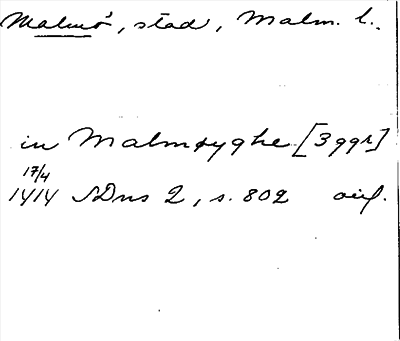 Malmö, stad, Malm. l.
in Malmøyghe [3 ggr]
17/4
1414 SDns 2, s. 802 avf.